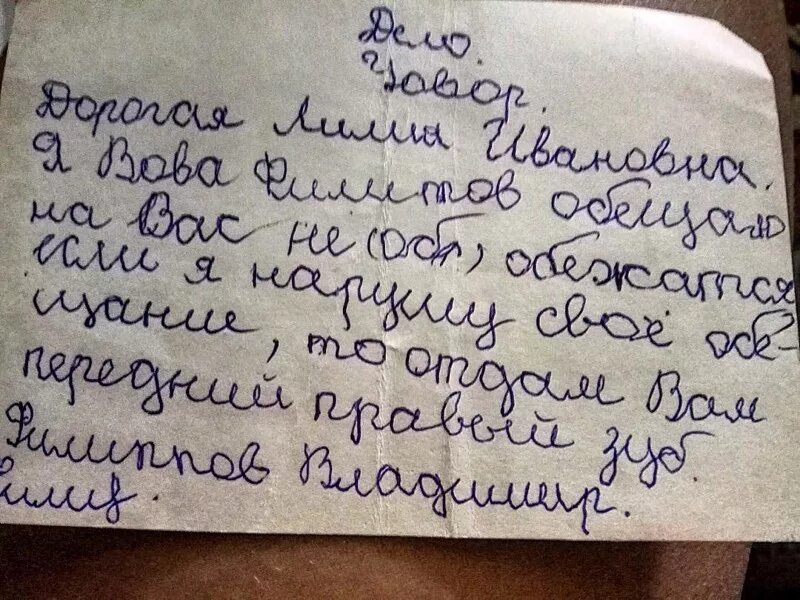 Дело.
Уовор.
Дорогая Лилия Ивановна.
Я Вова Филипов обещаю
на Вас не (обт) обежатся
если я нарушу своё обе-
щание, то отдам Вам
передний правый зуб.
Филиппов Владимир.